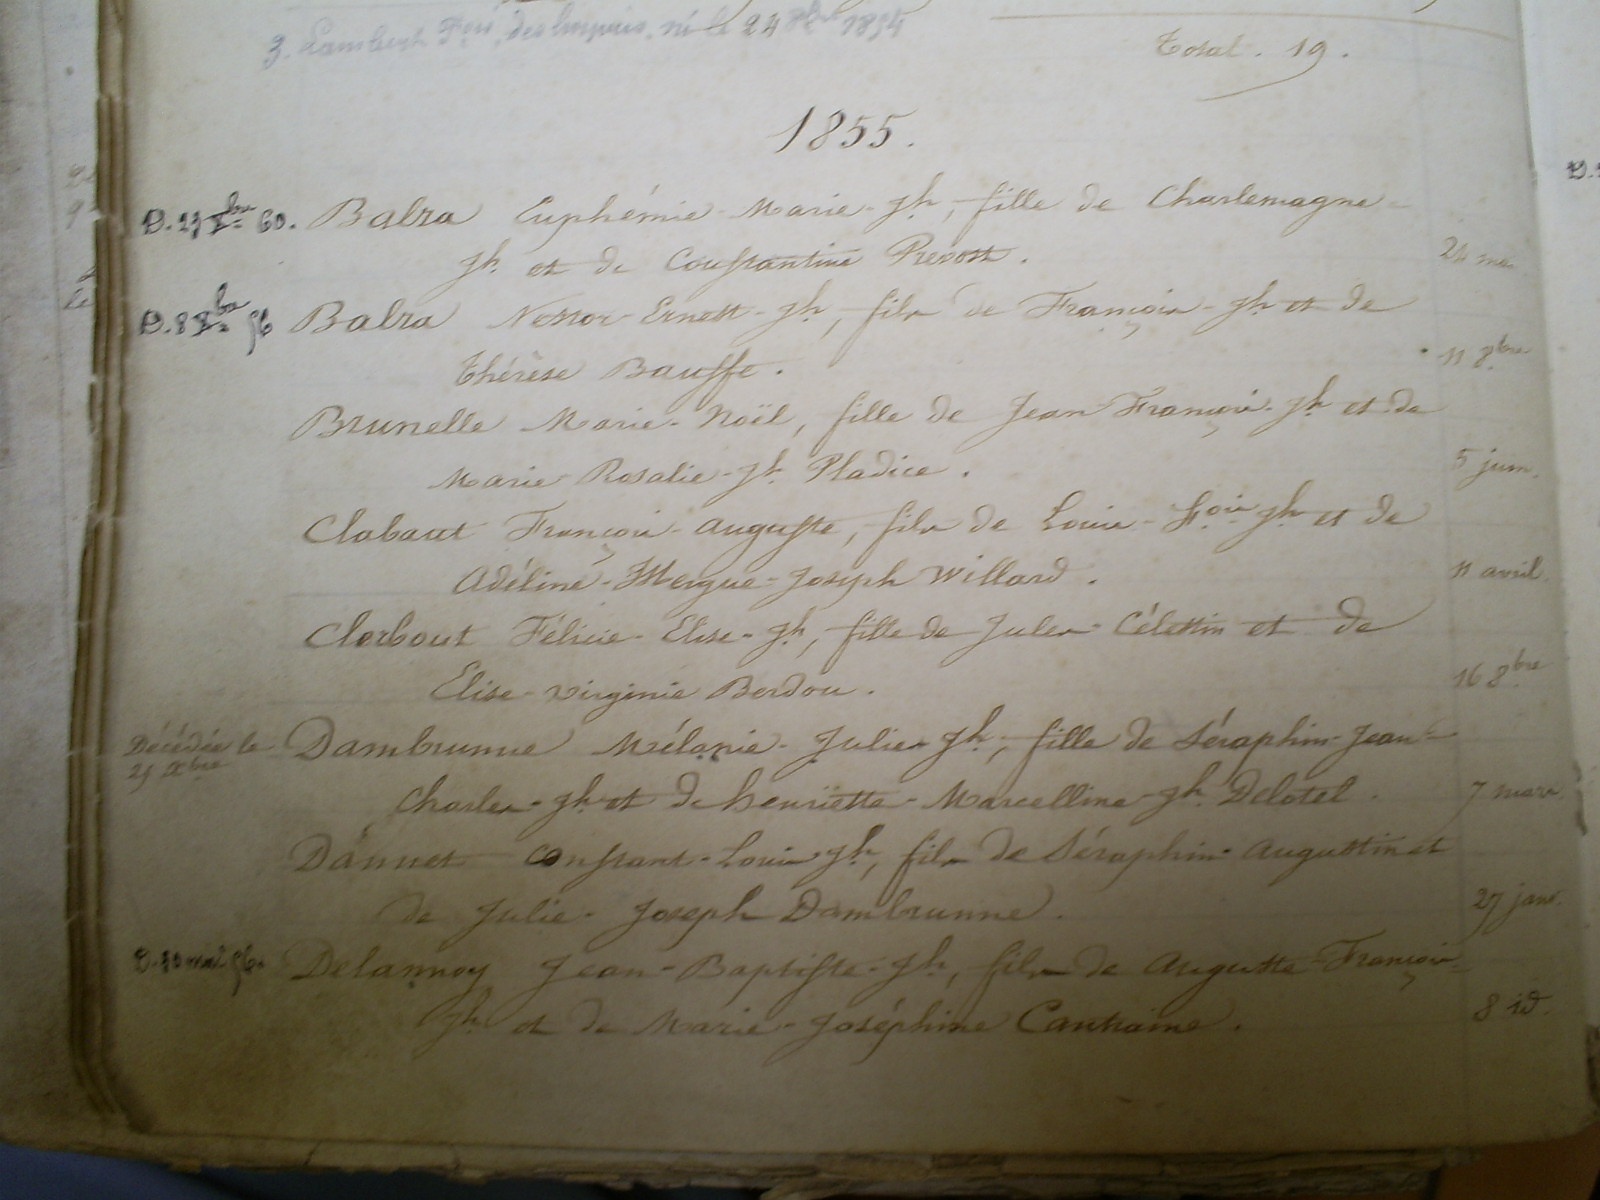 3. Lambert Fois, des hospices, né le 24 8bre 1854
Total. 19.
1855.
D. 23 Xbre 60. Balza Euphémie-Marie-Jh, fille de Charlemagne-
Jh et de Constantine Prevost.
24 mai
D. 8 Xbre 56 Balza Nestor-Ernest-Jh, fils de François-Jh et de
Thérèse Bauffe.
11 8bre
Brunelle Marie-Noël, fille de Jean-François-Jh et de
Marie-Rosalie-Jh Pladice.
5 juin
Clabaut François-Auguste, fils de Louis-Fois-Jh et de
Adéline-Joseph Willard.
11 avril
Clerbout Félicie-Elise-Jh, fille de Jules-Célestin et de
Elise-Virginie Berdou.
16 8bre
Décédée le Dambrunne Mélanie-Julie-Jh, fille de Séraphin-Jean-
Xbre
Charles-Jh et de henriette-Marcelline-Jh Delotel.
7 mars
Dannet Constant-Louis-Jh, fils de Séraphin-Augustin et
de Julie-Joseph Dambrunne.
27 janv.
D. 10 mai 56. Delannoy Jean-Baptiste-Jh, fils de Auguste-François-
Jh et de Marie-Joséphine Cantraine.
8 id.
D.